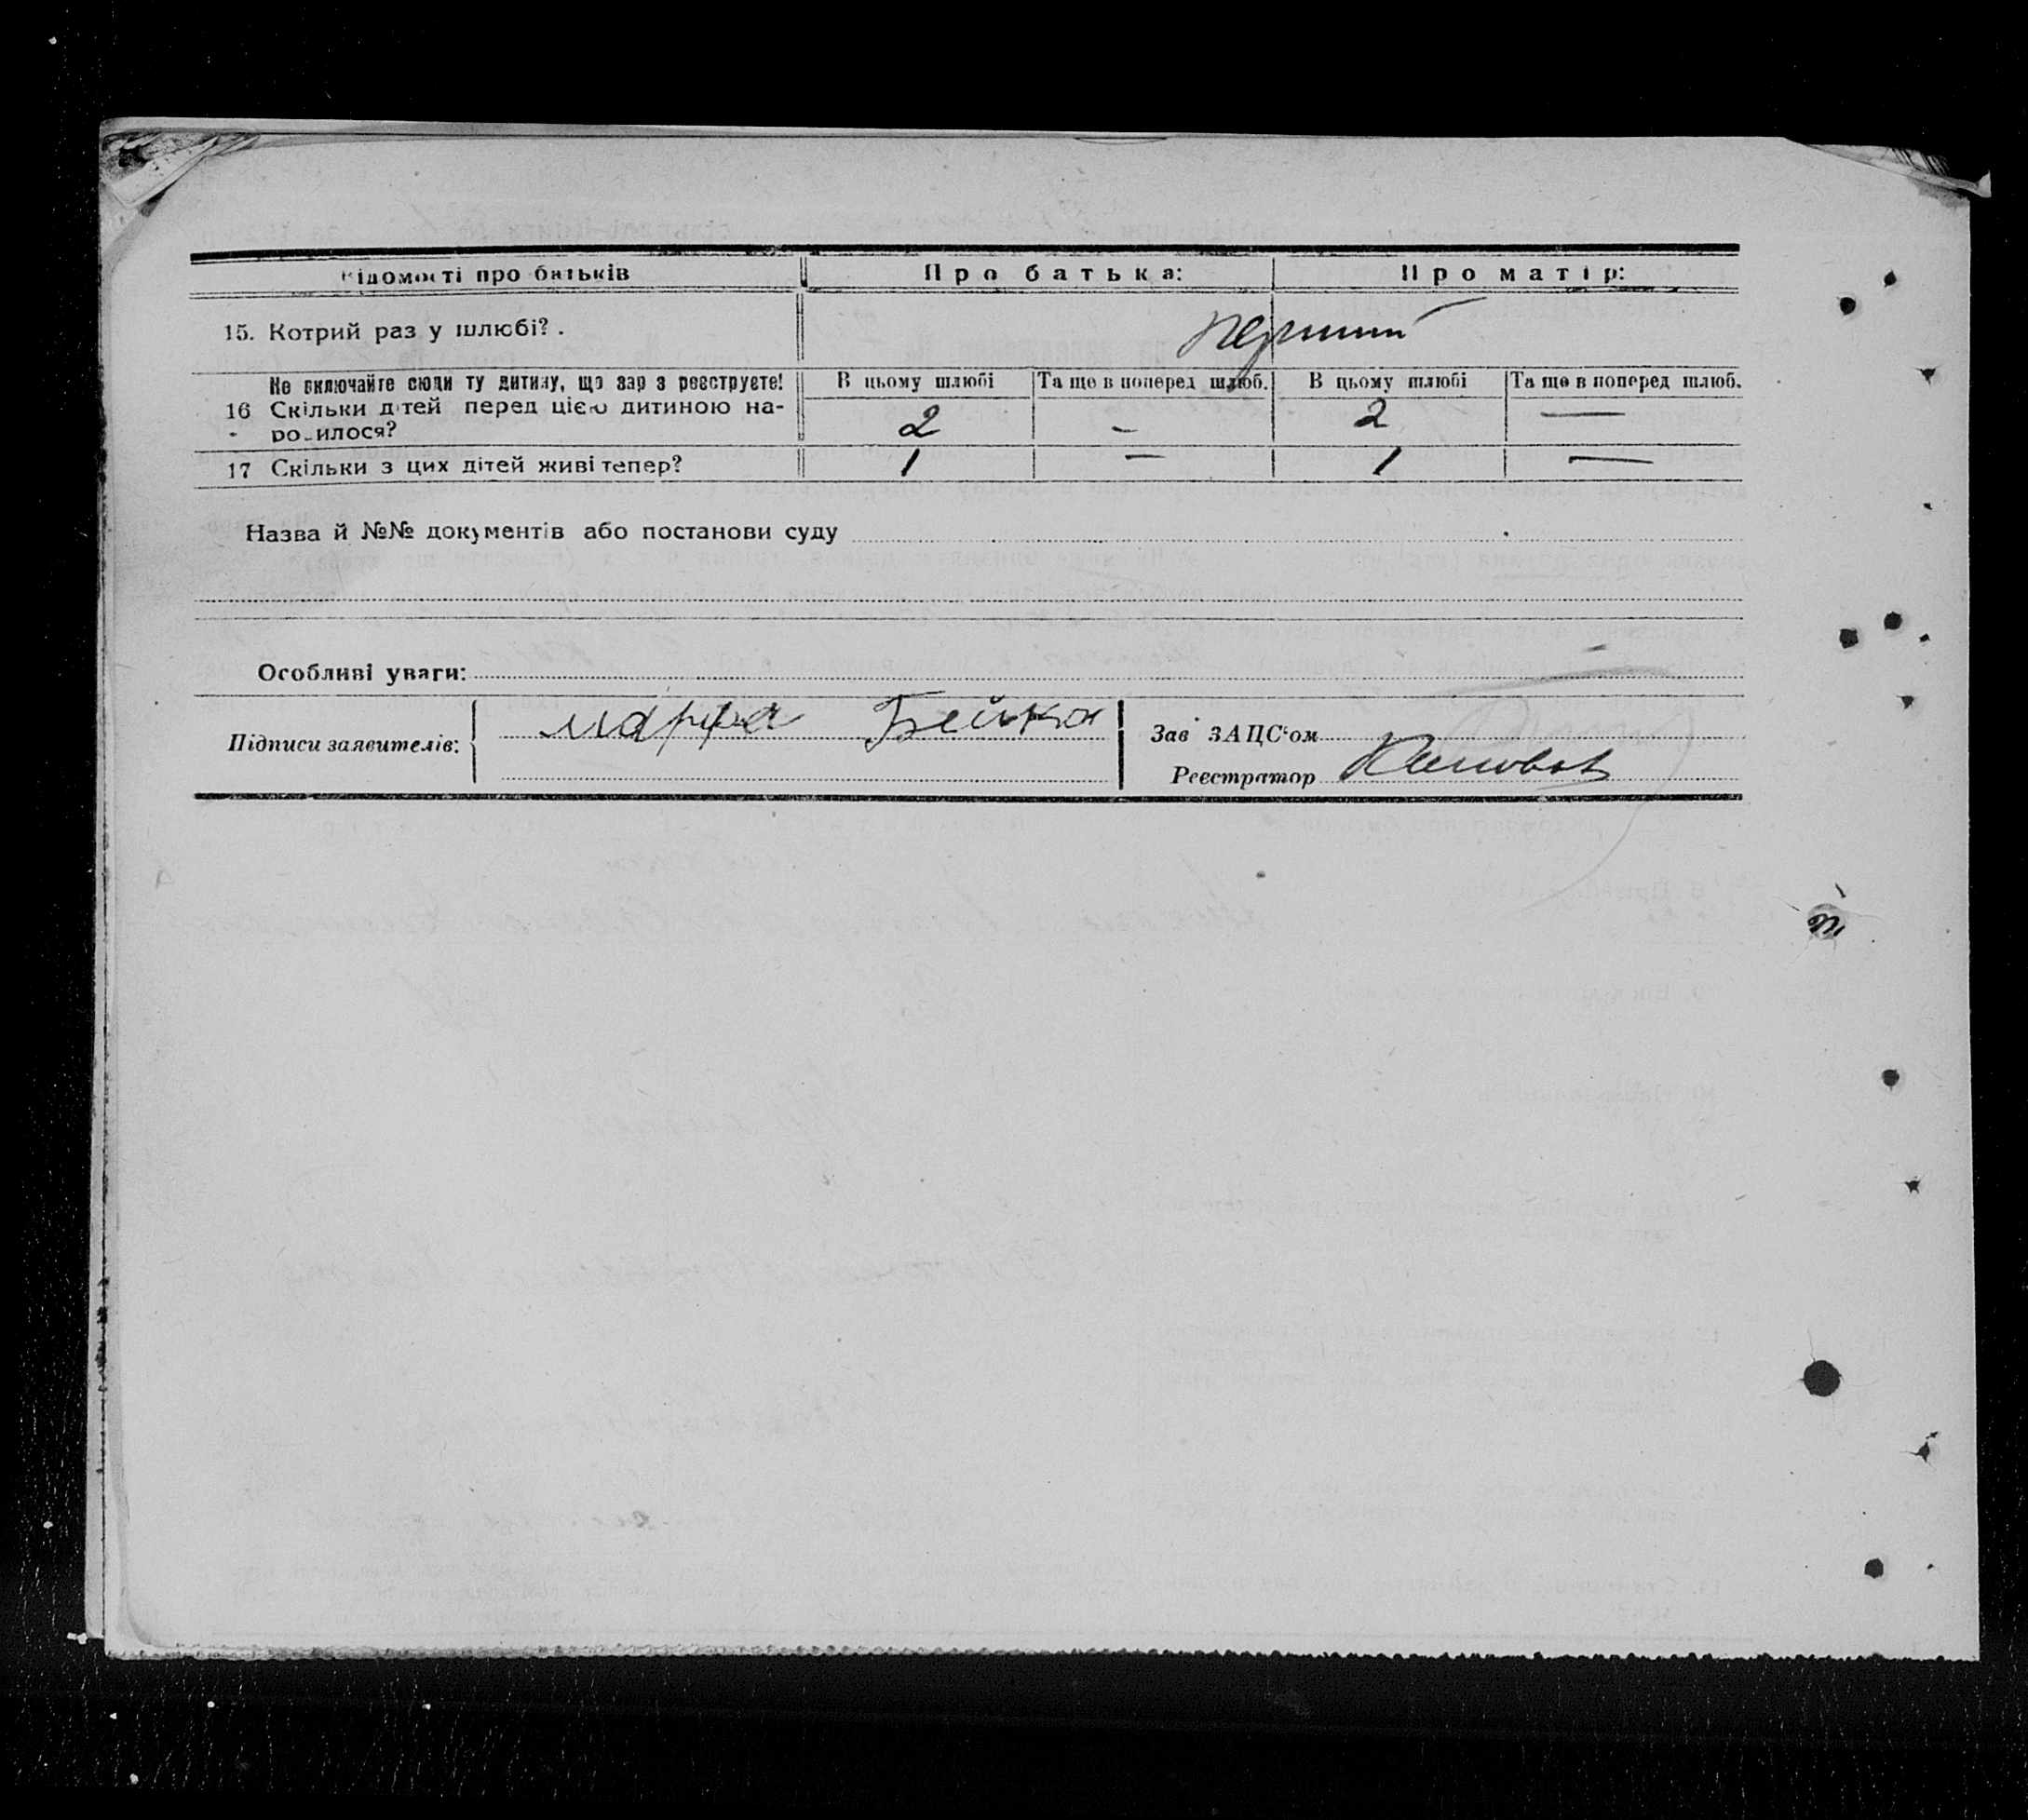 Відомості про батьків Про батька: Про матір:
15. Котрий раз у шлюбі? . перший
Не включайте сюди ту дитину, що зараз реєструєте! В цьому шлюбі Та ще в поперед шлюб. В цьому шлюбі Та ще в поперед шлюб.
16 Скільки дітей перед цією дитиною на- 2 – 2 —
родилося?
17 Скільки з цих дітей живі тепер? 1 — 1 —
Назва й №№ документів або постанови суду
Особливі уваги:
Підписи заявителів: марфа Бейка Зав ЗАЦС'ом
Реєстратор